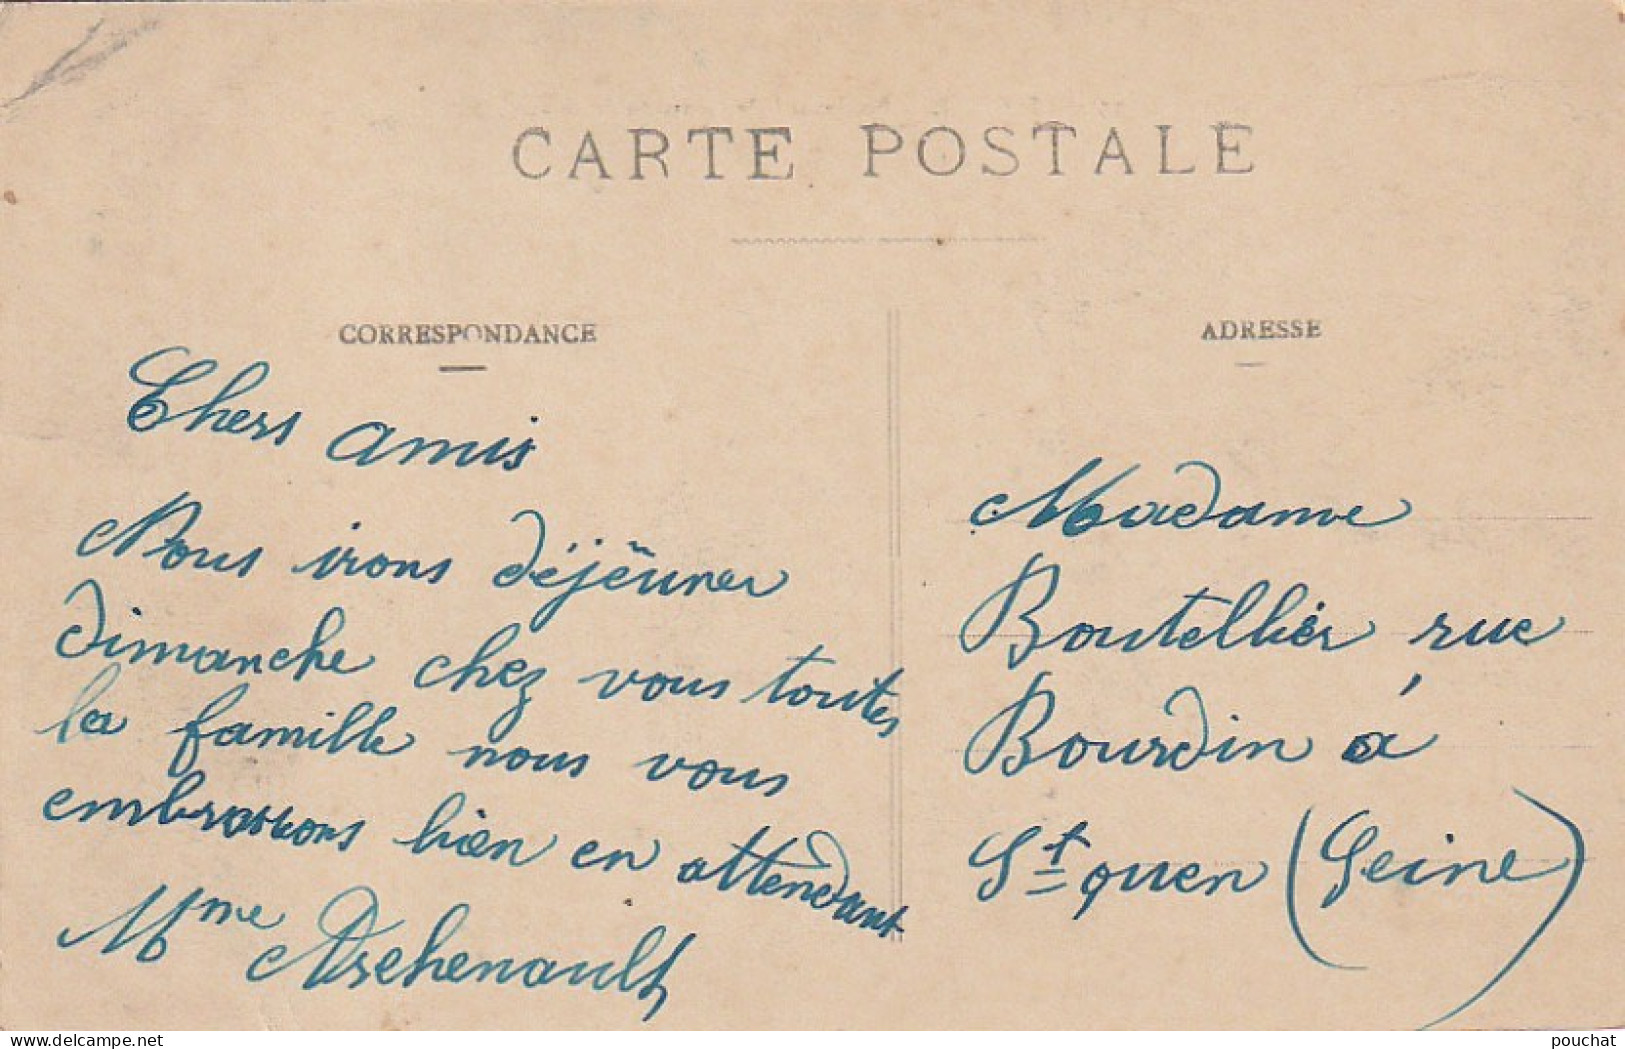 CARTE POSTALE
CORRESPONDANCE
Chers amis
Nous irons déjëuner
dimanche chez vous toutes
la famille nous vous
embrassons bien en attendant
Mme Archenault
ADRESSE
Madame
Boutellier rue
Bourdin à
St ouen (Seine)
delcampe.net
pouchat